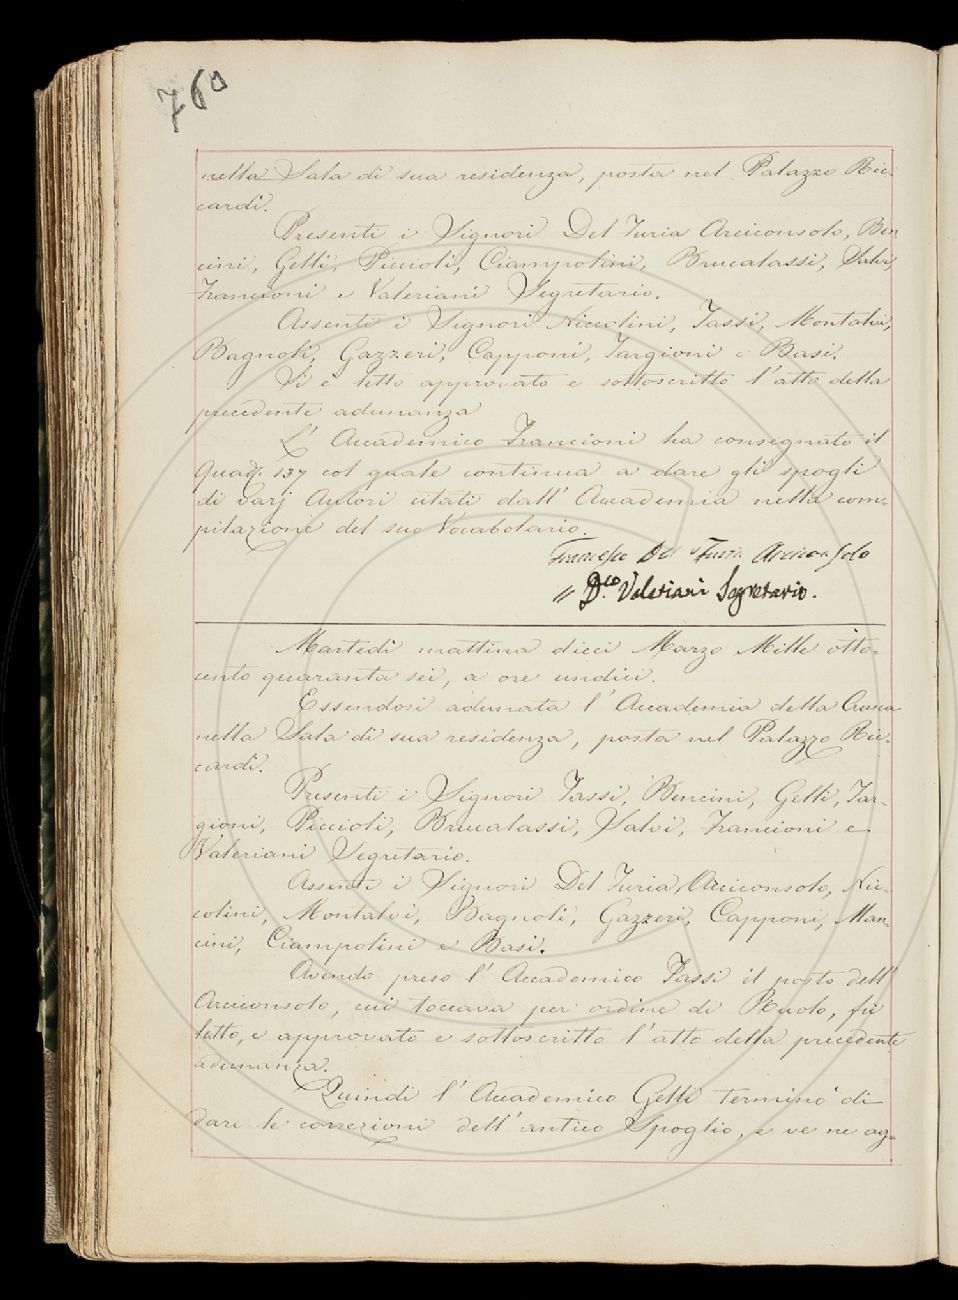 760
nella Sala di sua residenza, posta nel Palazzo Ric-
cardi.
Presenti i Signori Del Furia Arciconsolo, Ben
cini, Gelli, Piccioli, Ciampolini, Brucalassi, Salvi,
Francioni e Valeriani Segretario.
Assenti i Signori Niccolini, Tassi, Montalvi,
Bagnoli, Gazzeri, Capponi, Targioni e Basi.
Si è letto approvato e sottoscritto l'atto della
precedente adunanza
L' Accademico Francioni ha consegnato il
Quad. 137 col quale continua a dare gli spogli
di varj Autori citati dall' Accademia nella com-
pilazione del suo Vocabolario.
Francesco Del Furia Arciconsolo
// D.co Valeriani Segretario.
Martedì mattina dieci Marzo Mille otto-
cento quaranta sei, a ore undici.
Essendosi adunata l' Accademia della Crusca
nella Sala di sua residenza, posta nel Palazzo Ric-
cardi.
Presenti i Signori Tassi, Bencini, Gelli, Tar-
gioni, Piccioli, Brucalassi, Salvi, Francioni e
Valeriani Segretario.
Assenti i Signori Del Furia Arciconsolo, Nic-
colini, Montalvi, Bagnoli, Gazzeri, Capponi, Man-
cini, Ciampolini e Basi.
Avendo preso l' Accademico Tassi il posto dell'
Arciconsolo, cui toccava per ordine di Ruolo, fù
letto, e approvato e sottoscritto l'atto della precedente
adunanza.
Quindi l' Accademico Gelli terminò di
dare le correzioni dell' antico Spoglio, e ve ne ag-